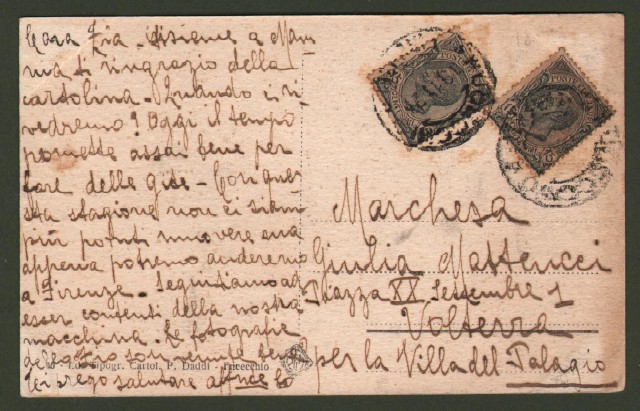 Cara Zia - Insieme a Mam-
ma ti ringrazio della
cartolina - Quando ci ri-
vedremo? Oggi il tempo
promette assai bene per
fare delle gite - Con que-
sta stagione non ci siam
più potuti muovere ma
appena potremo anderemo
a Firenze. Seguitiamo ad
esser contenti della nostra
macchina. Le fotografie
della gita son venute bene
ti prego salutare
Lo
Tipogr. Cartol. P. Daddi - Fucecchio
POSTE
Marchesa
Giulia Matteucci
Piazza XX Settembre 1
Volterra
per la Villa del Palagio